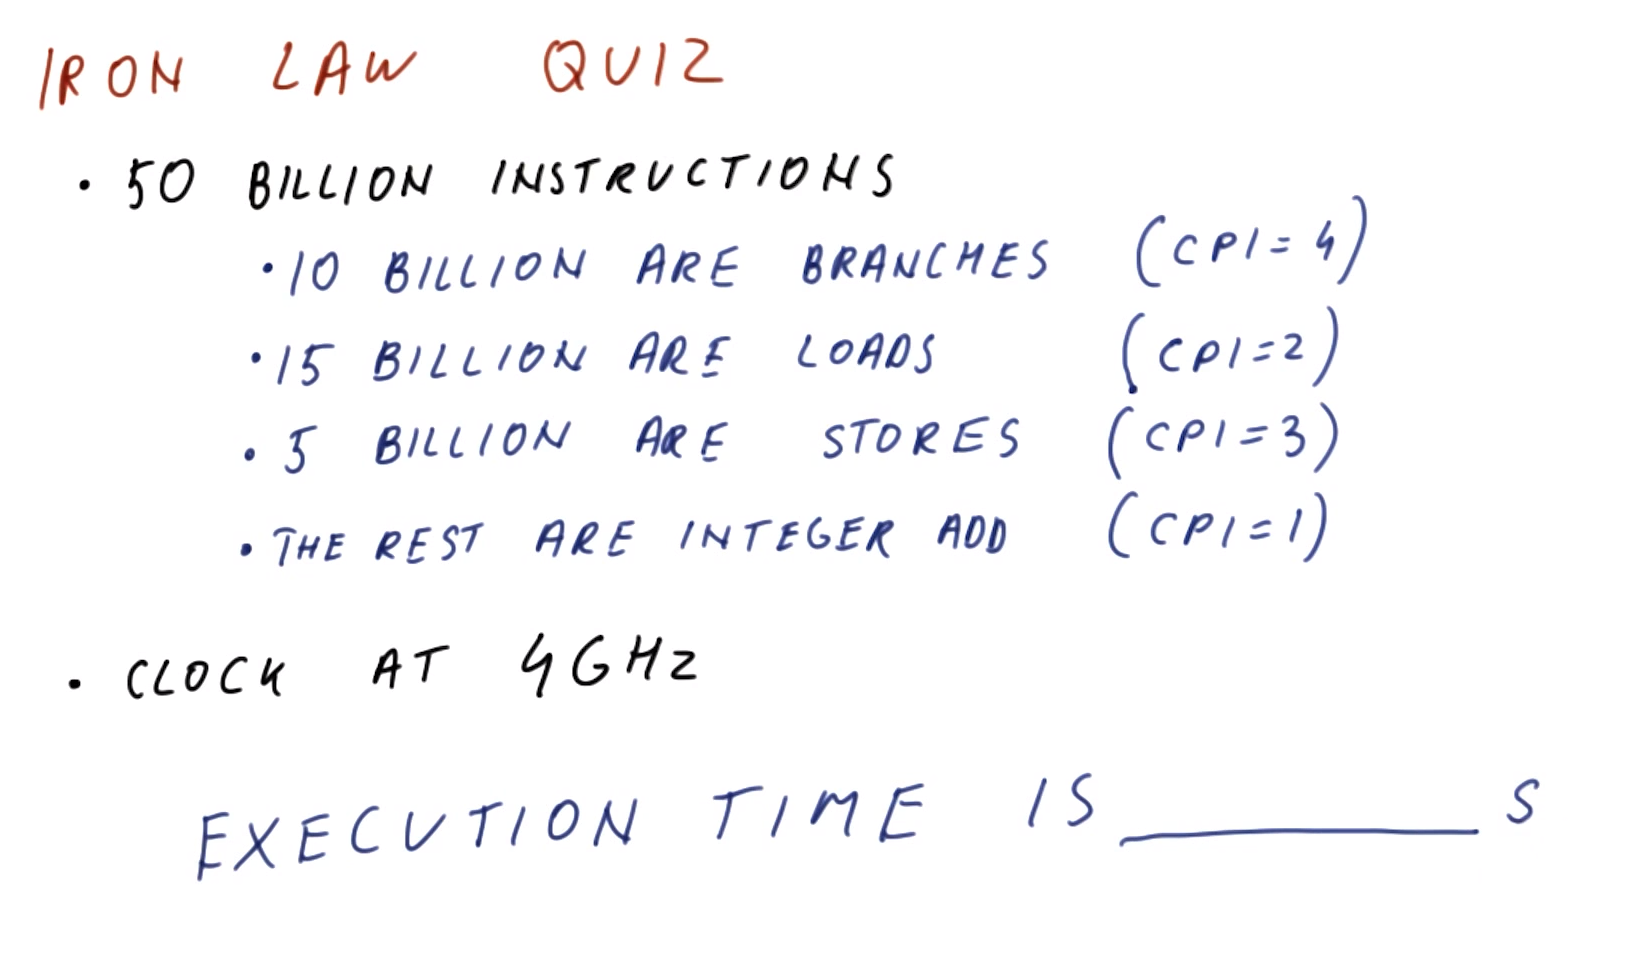 IRON LAW QUIZ
• 50 BILLION INSTRUCTIONS
• 10 BILLION ARE BRANCHES (CPI=4)
• 15 BILLION ARE LOADS (CPI=2)
• 5 BILLION ARE STORES (CPI=3)
• THE REST ARE INTEGER ADD (CPI=1)
• CLOCK AT 4GHz
EXECUTION TIME IS ______ S